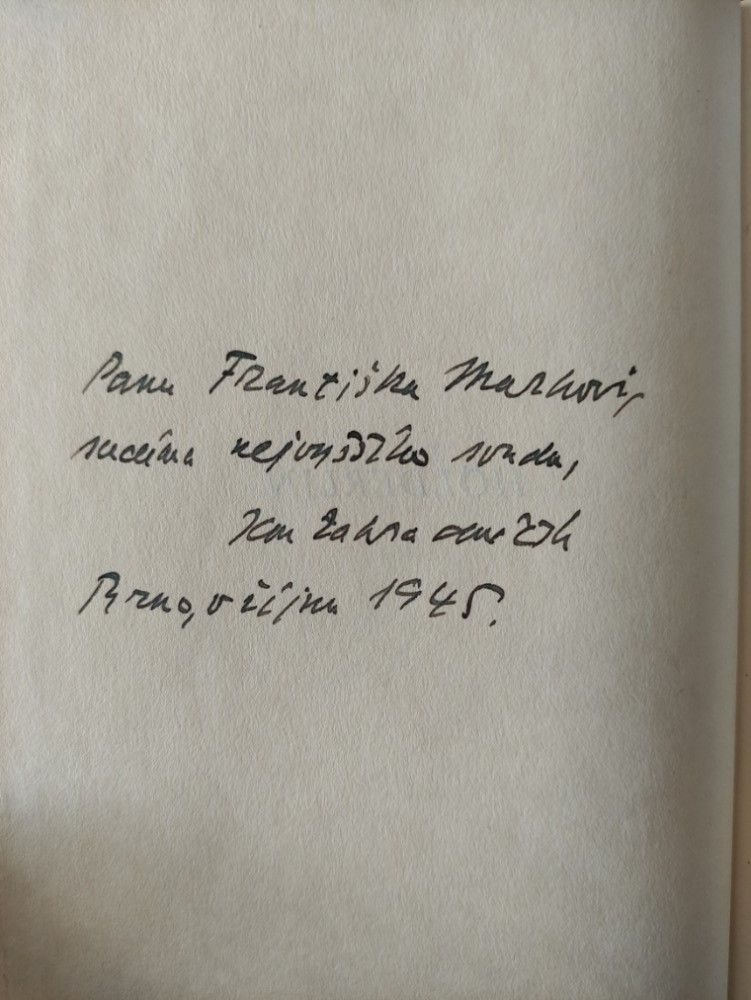 Panu Františku Markovi,
sudímu nejvyššího soudu,
Jan Zahradníček
Brno, v říjnu 1945.